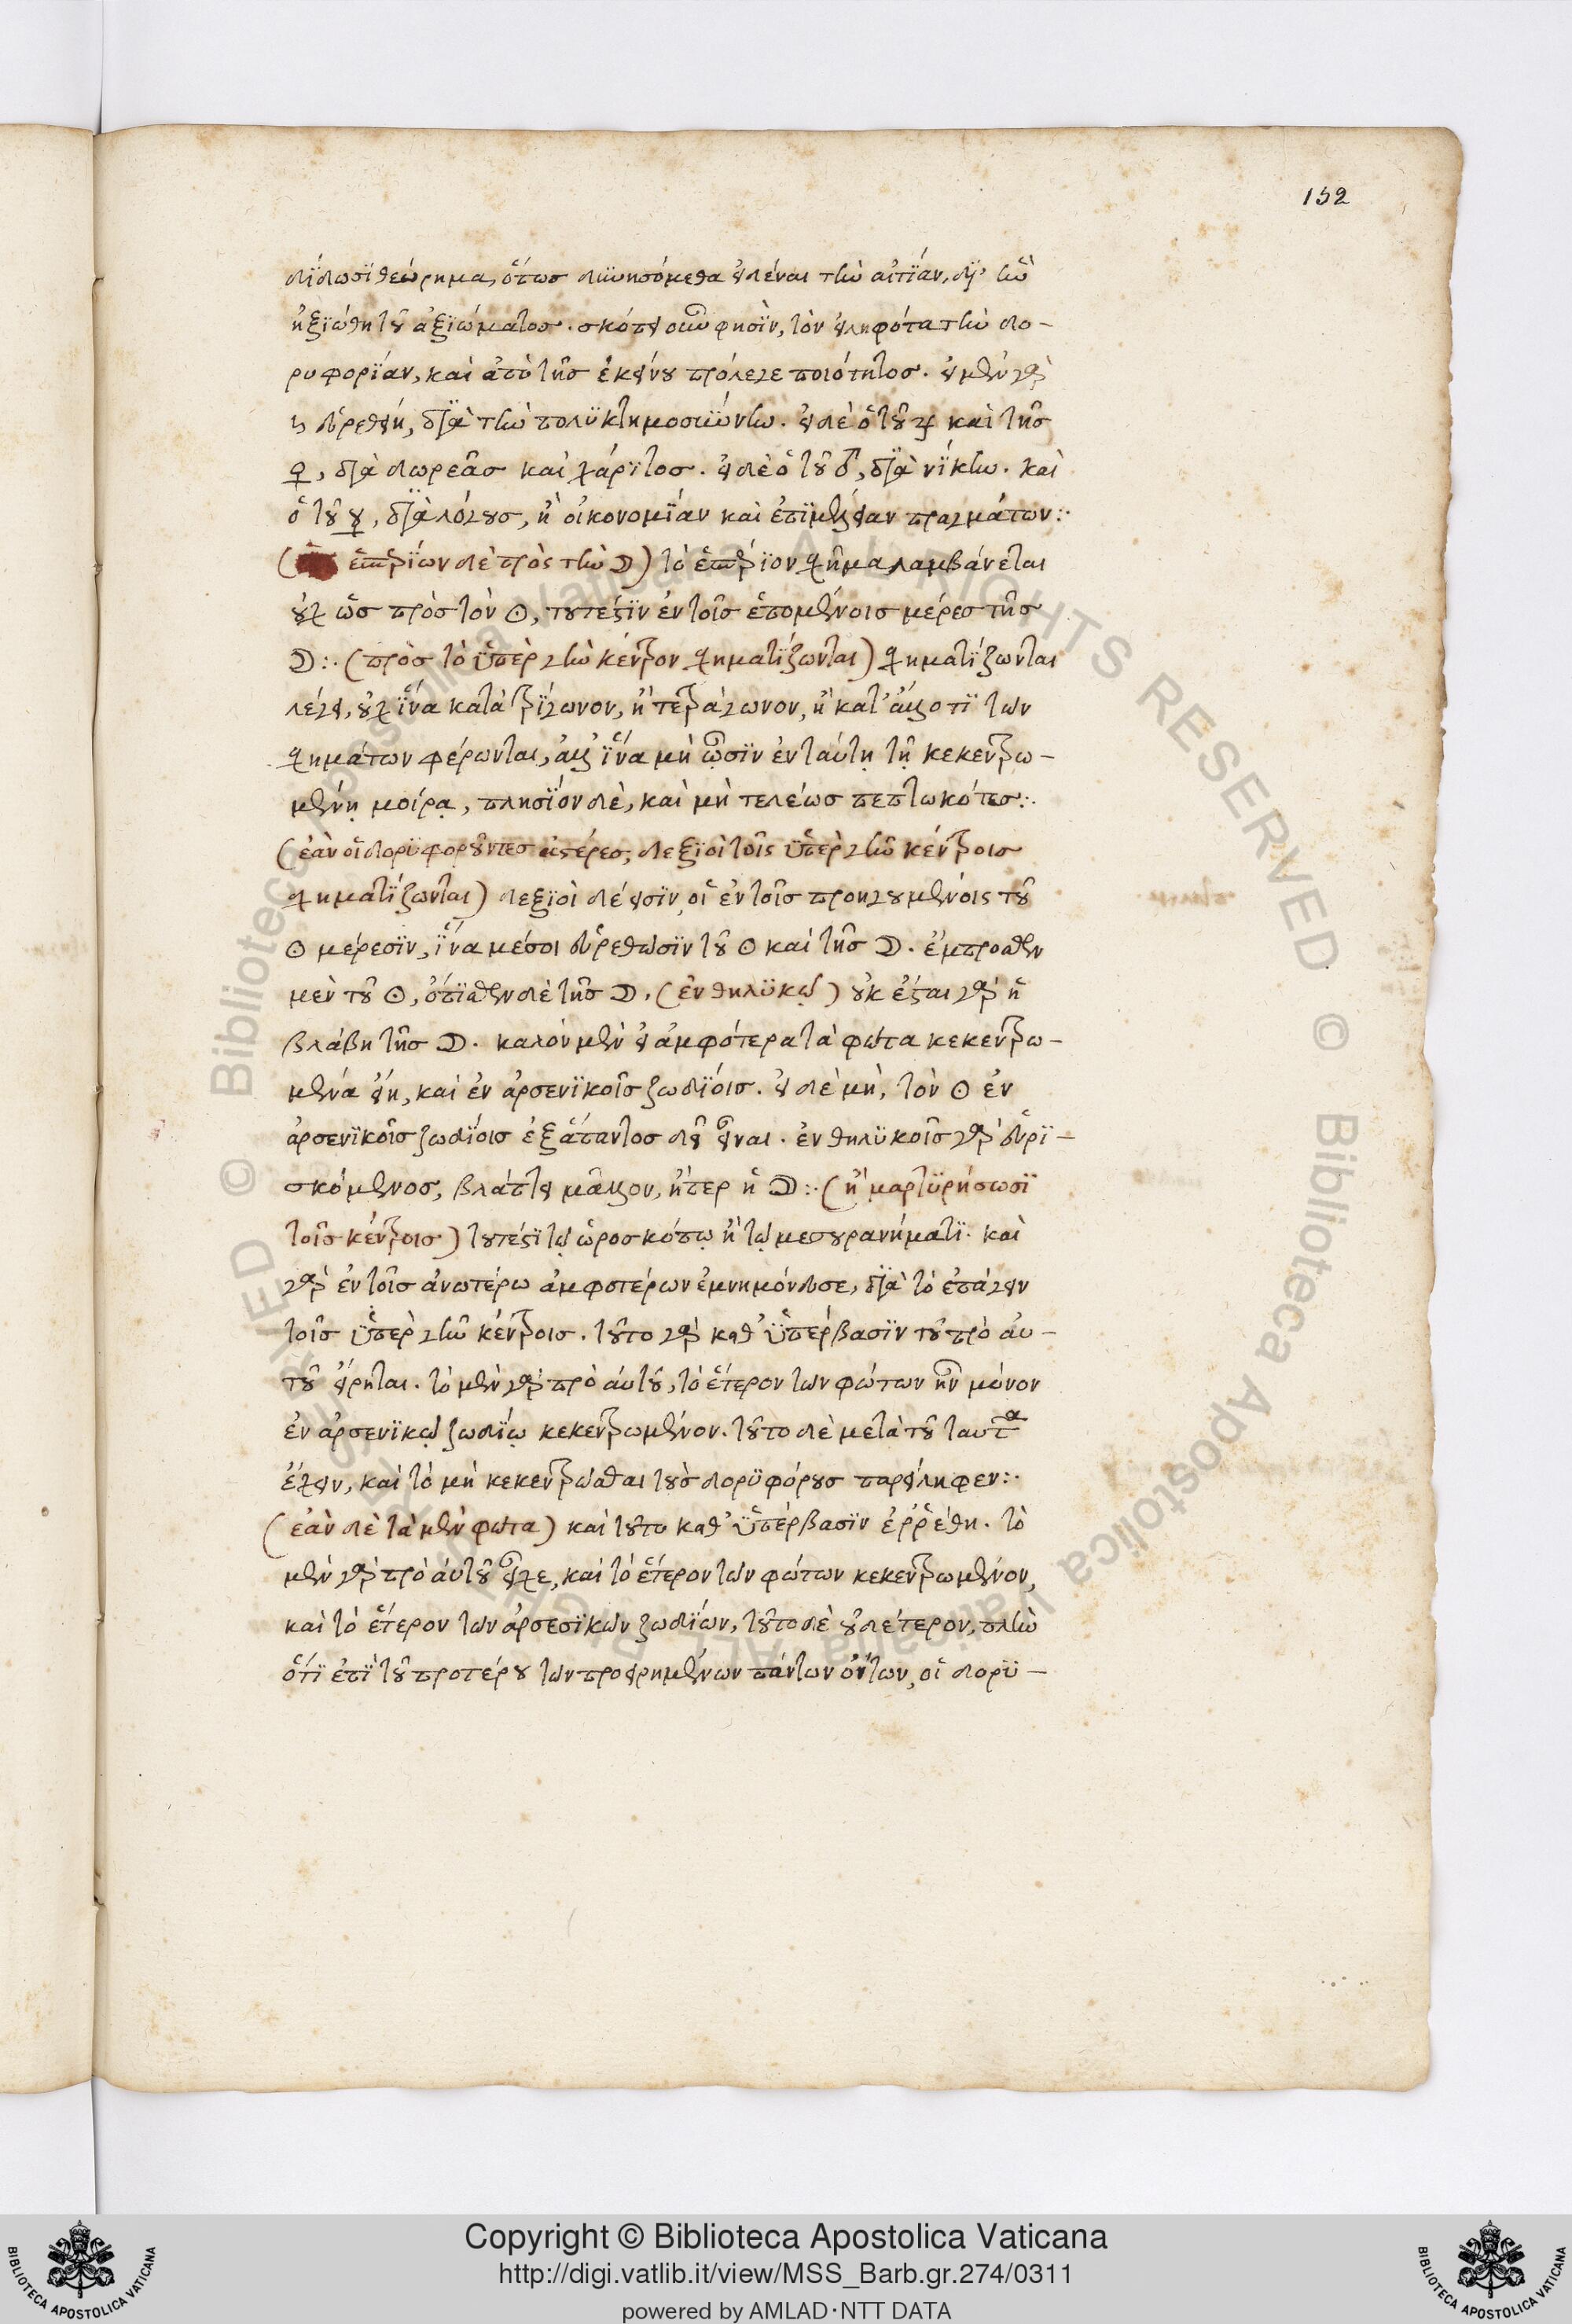 152
δίδωσϊ θεώρημα, οὕτωσ δυνησόμεθα εἰδέναι τὴν αἰτΐαν, δϊ' ἣν
ἠξϊώθη τοῦ ἀξϊώματοσ. σκόπει οὖν φησὶν, τὸν εἰληφότα τὴν δο-
ρυφορΐαν, καὶ ἀπὸ τῆσ ἐκείνου πρόλεγε ποιότητοσ. εἰ μὲν γὰρ
♄ εὑρεθείη, δϊὰ τὴν πολϋκτημοσϋνην. εἰ δὲ ὁ τοῦ ♃ καὶ τῆσ
♀, δϊὰ δωρεᾶσ καὶ χάρϊτοσ. εἰ δὲ ὁ τοῦ ♂, δϊὰ νΐκην. καὶ
ὁ τοῦ ☿, δϊὰ λόγουσ, ἢ οἰκονομΐαν καὶ ἐπϊμέλειαν πραγμάτων:·
( ἑπτρϊων δὲ πρὸς τὴν ☽) τὸ ἑπτρΐον σχῆμα λαμβάνεται
οὐχ ὡσ πρὸσ τὸν ☉, τουτέστϊν ἐν τοῖσ ἑπομένοισ μέρεσ τῆσ
☽:· (πρὸσ τὸ ὑπὲρ γῆν κέντρον σχηματΐζωνται) σχηματΐζωνται
λέγει, οὐχ ἵνα κατὰ τρΐγωνον, ἢ τετράγωνον, ἢ κατ' ἄλλο τϊ τῶν
σχημάτων φέρωνται, ἀλλ' ἵνα μὴ ὦσϊν ἐν ταύτῃ τῇ κεκεντρω-
μένῃ μοίρᾳ, πλησΐον δὲ, καὶ μὴ τελέωσ πεπτωκότεσ:·
(ἐὰν οἱ δορϋφοροῦντεσ ἀστέρεσ, δεξϊοὶ τοῖς ὑπὲρ γῆν κέντροισ
σχηματΐζωνται) δεξϊοὶ λέγεισϊν, οἱ ἐν τοῖσ προηγουμένοις τοῦ
☉ μέρεσϊν, ἵνα μέσοι εὑρεθῶσϊν τοῦ ☉ καὶ τῆσ ☽. ἔμπροσθεν
μὲν τοῦ ☉, ὄπϊσθεν δὲ τῆσ ☽. (ἐν θηλϋκῷ) οὐκ ἔσται γὰρ ἡ
βλάβη τῆσ ☽. καλὸν μὲν εἰ ἀμφότερα τὰ φῶτα κεκεντρω-
μένα εἴη, καὶ ἐν ἀρσενϊκοῖσ ζωδΐοισ. εἰ δὲ μὴ, τὸν ☉ ἐν
ἀρσενϊκοῖσ ζωδΐοισ ἐξάπαντοσ δεῖ εἶναι. ἐν θηλϋκοῖσ γὰρ εὑρϊ-
σκόμενοσ, βλάπτει μᾶλλον, ἤπερ ἡ ☽:· (ἢ μαρτϋρήσωσϊ
τοῖσ κέντροισ) τουτέστϊ τῷ ὡροσκόπῳ ἢ τῷ μεσουρανήματϊ. καὶ
γὰρ ἐν τοῖσ ἀνωτέρω ἀμφοτέρων ἐμνημόνευσε, δϊὰ τὸ ἐπάγειν
τοῖσ ὑπὲρ γῆν κέντροισ. τοῦτο γὰρ καθ' ὑπέρβασϊν τοῦ πρὸ αὐ-
τοῦ εἴρηται. τὸ μὲν γὰρ πρὸ αὐτοῦ, τὸ ἕτερον τῶν φώτων ἦν μόνον
ἐν ἀρσενϊκῷ ζωδΐῳ κεκεντρωμένον. τοῦτο δὲ μετὰ τοῦ ταῦτα
ἔχειν, καὶ τὸ μὴ κεκεντρῶσθαι τοὺσ δορϋφόρουσ παρείληφεν:·
(ἐὰν δὲ τὰ μὲν φῶτα) καὶ τοῦτο καθ' ὑπέρβασϊν ἐρῥέθη. τὸ
μὲν γὰρ πρὸ αὐτοῦ εἶχε, καὶ τὸ ἕτερον τῶν φώτων κεκεντρωμένον,
καὶ τὸ ἕτερον τῶν ἀρσεσϊκῶν ζωδΐων, τοῦτο δὲ οὐδέτερον, πλὴν
ὅτϊ ἐπΐ τοῦ προτέρου τῶν προειρημένων πάντων ὄντων, οἱ δορϋ-
© Biblioteca Apostolica Vaticana ALL RIGHTS RESERVED
Copyright © Biblioteca Apostolica Vaticana
http://digi.vatlib.it/view/MSS_Barb.gr.274/0311
powered by AMLAD·NTT DATA
BIBLIOTECA APOSTOLICA VATICANA
BIBLIOTECA APOSTOLICA VATICANA